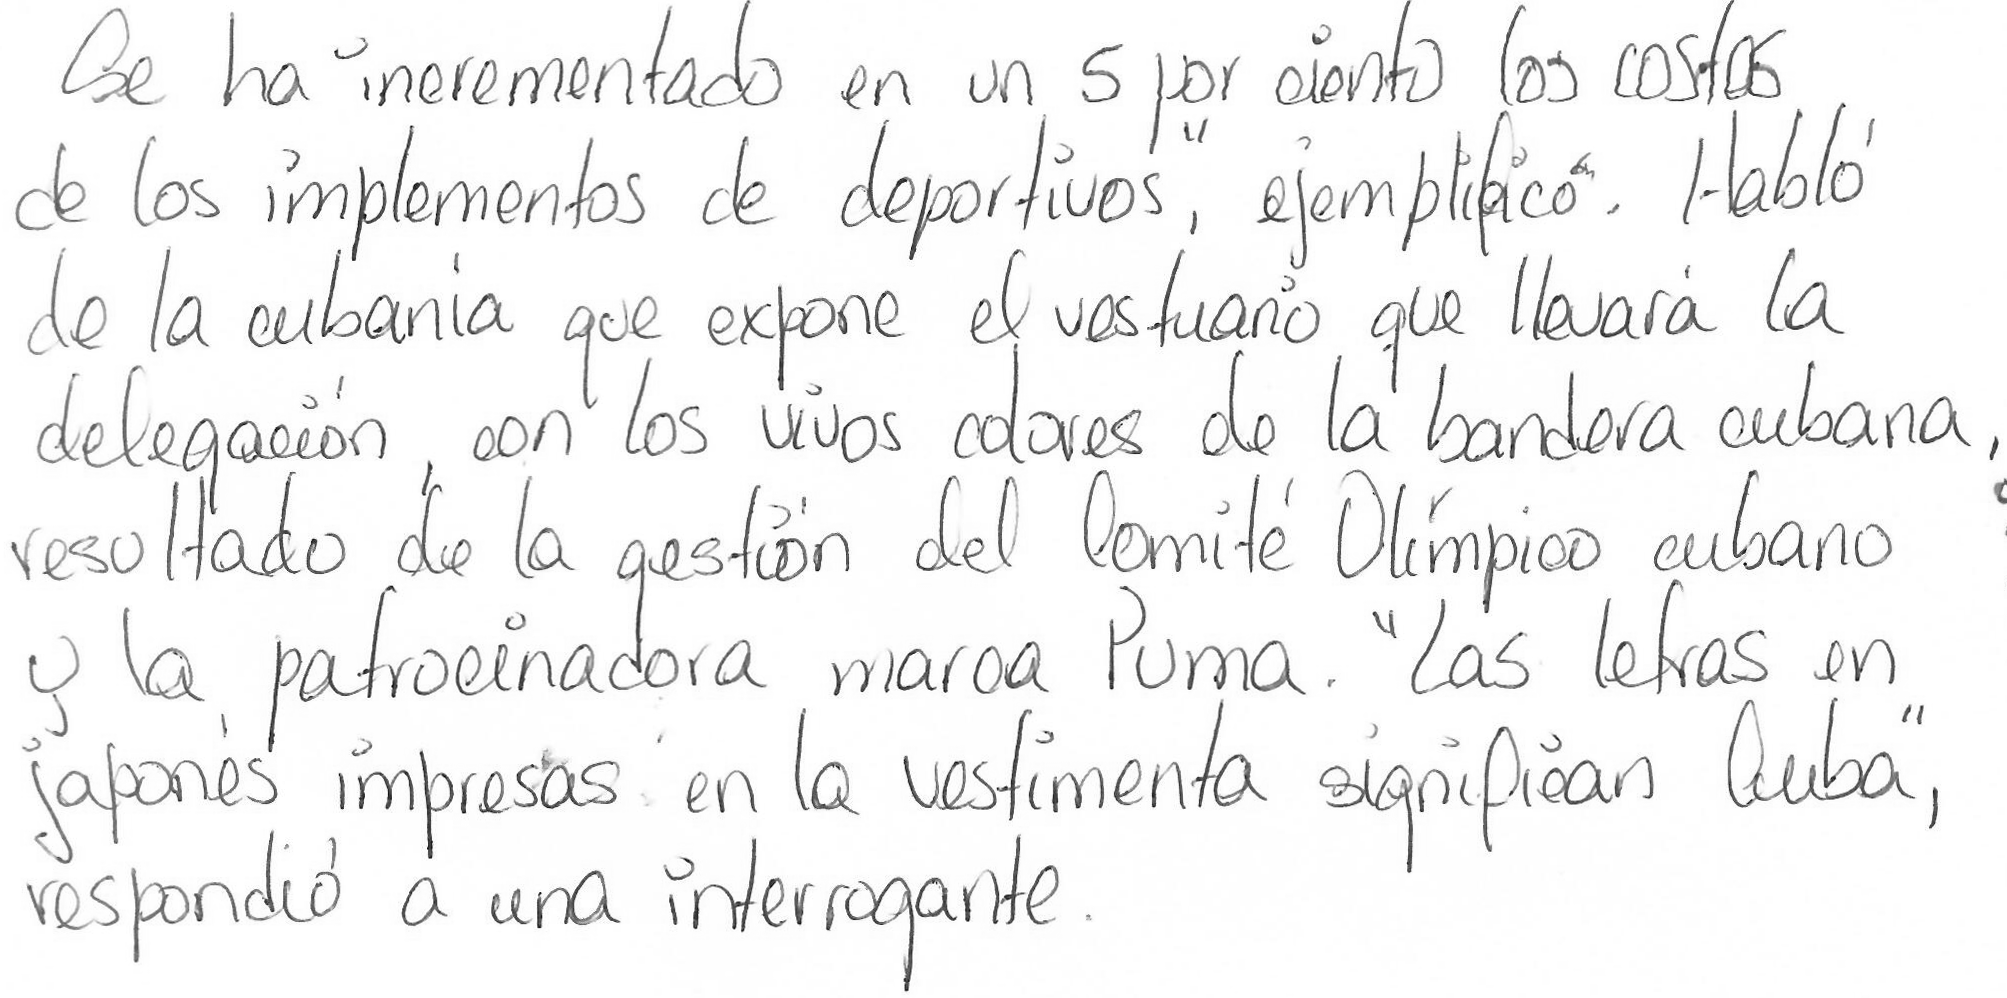 Se ha incrementado en un 5 por ciento los costos
de los implementos de deportivos", ejemplificó". Habló
de la cubanía que expone el vestuario que llevará la
delegación, con los vivos colores de la bandera cubana,
resultado de la gestión del Comité Olímpico cubano
y la patrocinadora marca Puma. "Las letras en
japonés impresas en la vestimenta significan Cuba",
respondió a una interrogante.